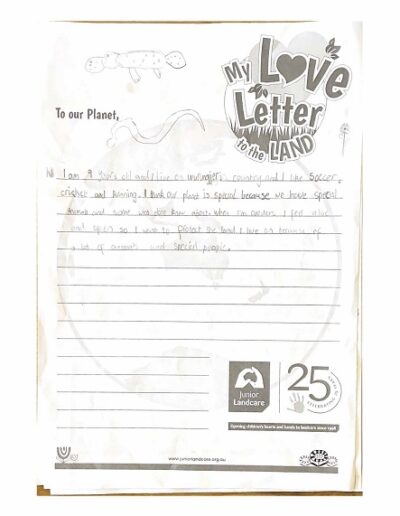 My Love
Letter
to the LAND
To our Planet,
Hi I am 9 years old and I live on country and I like Soccer,
cricket and running. I think our planet is special because we have special
animals and some we dont know about. When I'm outdoors I feel alive
and so I want to protect the land I live on because of
a lot of animals and special people.
Junior
Landcare
25
YEARS OF
CELEBRATING
Opening children's hearts and hands to landcare since 1998
www.juniorlandcare.org.au